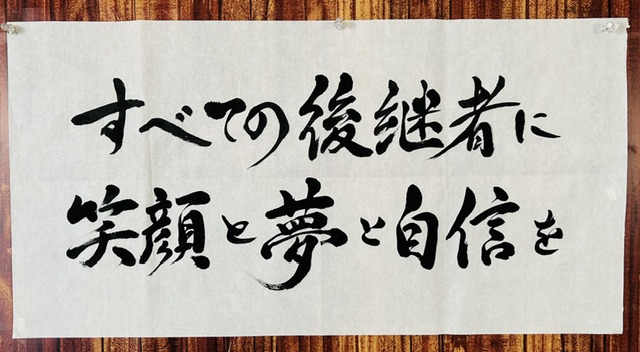 すべての後継者に
笑顔と夢と自信を